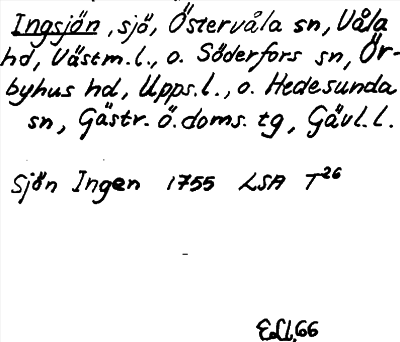 Ingsjön, sjö, Östervåla sn, Våla
hd, Västm.l., o. Söderfors sn, Ör-
byhus hd, Upps.l., o. Hedesunda
sn, Gästr. ö.doms. tg, Gävl.l.
Sjön Ingen 1755 LSA T26